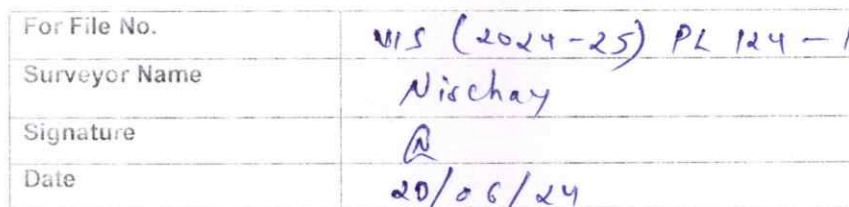 For File No. VIS (2024-25) PL 124 -
Surveyor Name Nischay
Signature
Date 20/06/24